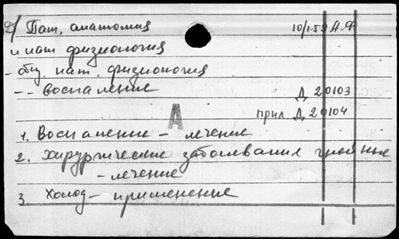 д/ Пат. анатомия 10/I-59 А.Ф
и пат физиология
- общ. пат. физиология
-- воспаление Д 20103
А прил. Д 20104
1. Воспаление - лечение
2. Хирургические заболевания гнойные
- лечение
3. Холод - применение